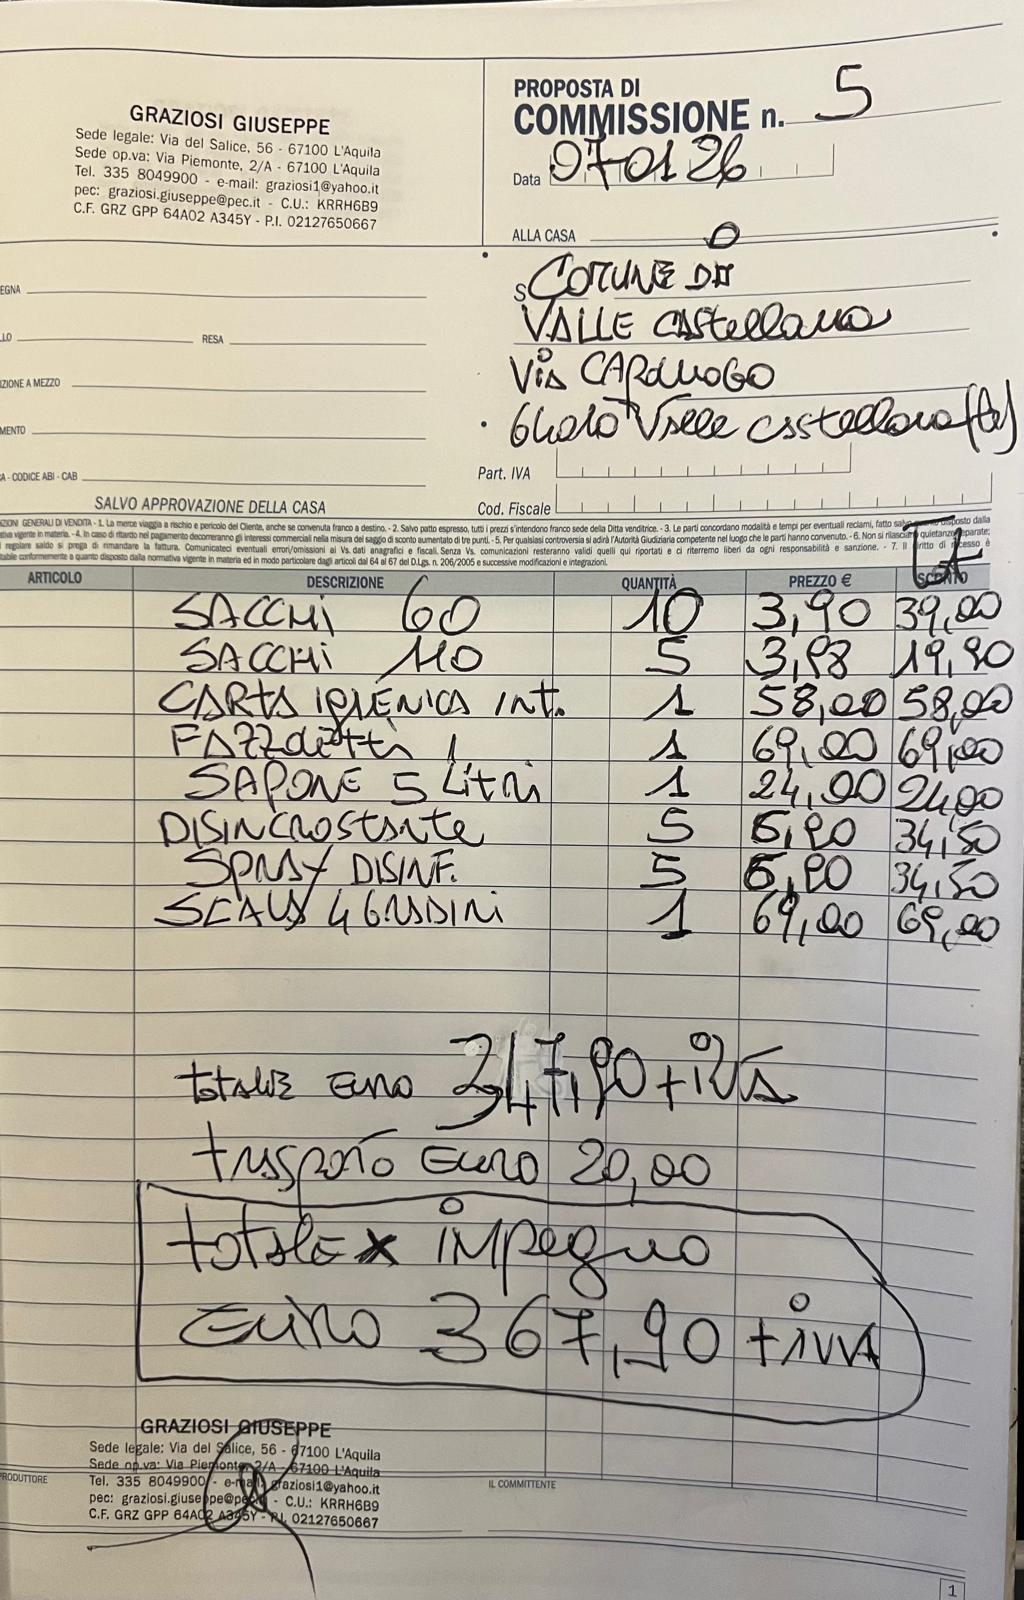 GRAZIOSI GIUSEPPE
Sede legale: Via del Salice, 56 - 67100 L'Aquila
Sede op.va: Via Piemonte, 2/A - 67100 L'Aquila
Tel. 335 8049900 - e-mail: graziosi1@yahoo.it
pec: graziosi.giuseppe@pec.it - C.U.: KRRH6B9
C.F. GRZ GPP 64A02 A345Y - P.I. 02127650667
PROPOSTA DI
COMMISSIONE n. 5
Data 07 01 26
ALLA CASA
EGNA
LLO RESA
IZIONE A MEZZO
MENTO
A - CODICE ABI - CAB
S
COMUNE DI
VALLE CASTELLANA
VIA CAPOLUOGO
64010 Valle Castellana (te)
Part. IVA
Cod. Fiscale
SALVO APPROVAZIONE DELLA CASA
ZIONI GENERALI DI VENDITA - 1. La merce viaggia a rischio e pericolo del Cliente, anche se convenuta franco a destino. - 2. Salvo patto espresso, tutti i prezzi s'intendono franco sede della Ditta venditrice. - 3. Le parti concordano modalità e tempi per eventuali reclami, fatto salvo quanto disposto dalla
tiva vigente in materia. - 4. In caso di ritardo nel pagamento decorreranno gli interessi commerciali nella misura del saggio di sconto aumentato di tre punti. - 5. Per qualsiasi controversia si adirà l'Autorità Giudiziaria competente nel luogo che le parti hanno convenuto. - 6. Non si rilasciano quietanze separate;
l regolare saldo si prega di rimandare la fattura. Comunicateci eventuali errori/omissioni ai Vs. dati anagrafici e fiscali. Senza Vs. comunicazioni resteranno validi quelli qui riportati e ci riterremo liberi da ogni responsabilità e sanzione. - 7. Il diritto di recesso è
itabile conformemente a quanto disposto dalla normativa vigente in materia ed in modo particolare dagli articoli dal 64 al 67 del D.Lgs. n. 206/2005 e successive modificazioni e integrazioni.
ARTICOLO DESCRIZIONE QUANTITÀ PREZZO € SCONTO
SACCHI 60 10 3,90 39,00
SACCHI 110 5 3,98 19,90
CARTA IGIENICA INT. 1 58,00 58,00
FAZZOLETTI 1 69,00 69,00
SAPONE 5 Litri 1 24,00 24,00
DISINCROSTANTE 5 6,90 34,50
SPRAY DISINF. 5 6,90 34,50
SCALA 4 GRADINI 1 69,00 69,00
totale Euro 347,90 + iva
trasporto Euro 20,00
totale x impegno
Euro 367,90 + iva
GRAZIOSI GIUSEPPE
Sede legale: Via del Salice, 56 - 67100 L'Aquila
Sede op.va: Via Piemonte, 2/A - 67100 L'Aquila
Tel. 335 8049900 - e-mail: graziosi1@yahoo.it
pec: graziosi.giuseppe@pec.it - C.U.: KRRH6B9
C.F. GRZ GPP 64A02 A345Y - P.I. 02127650667
RODUTTORE
IL COMMITTENTE
1